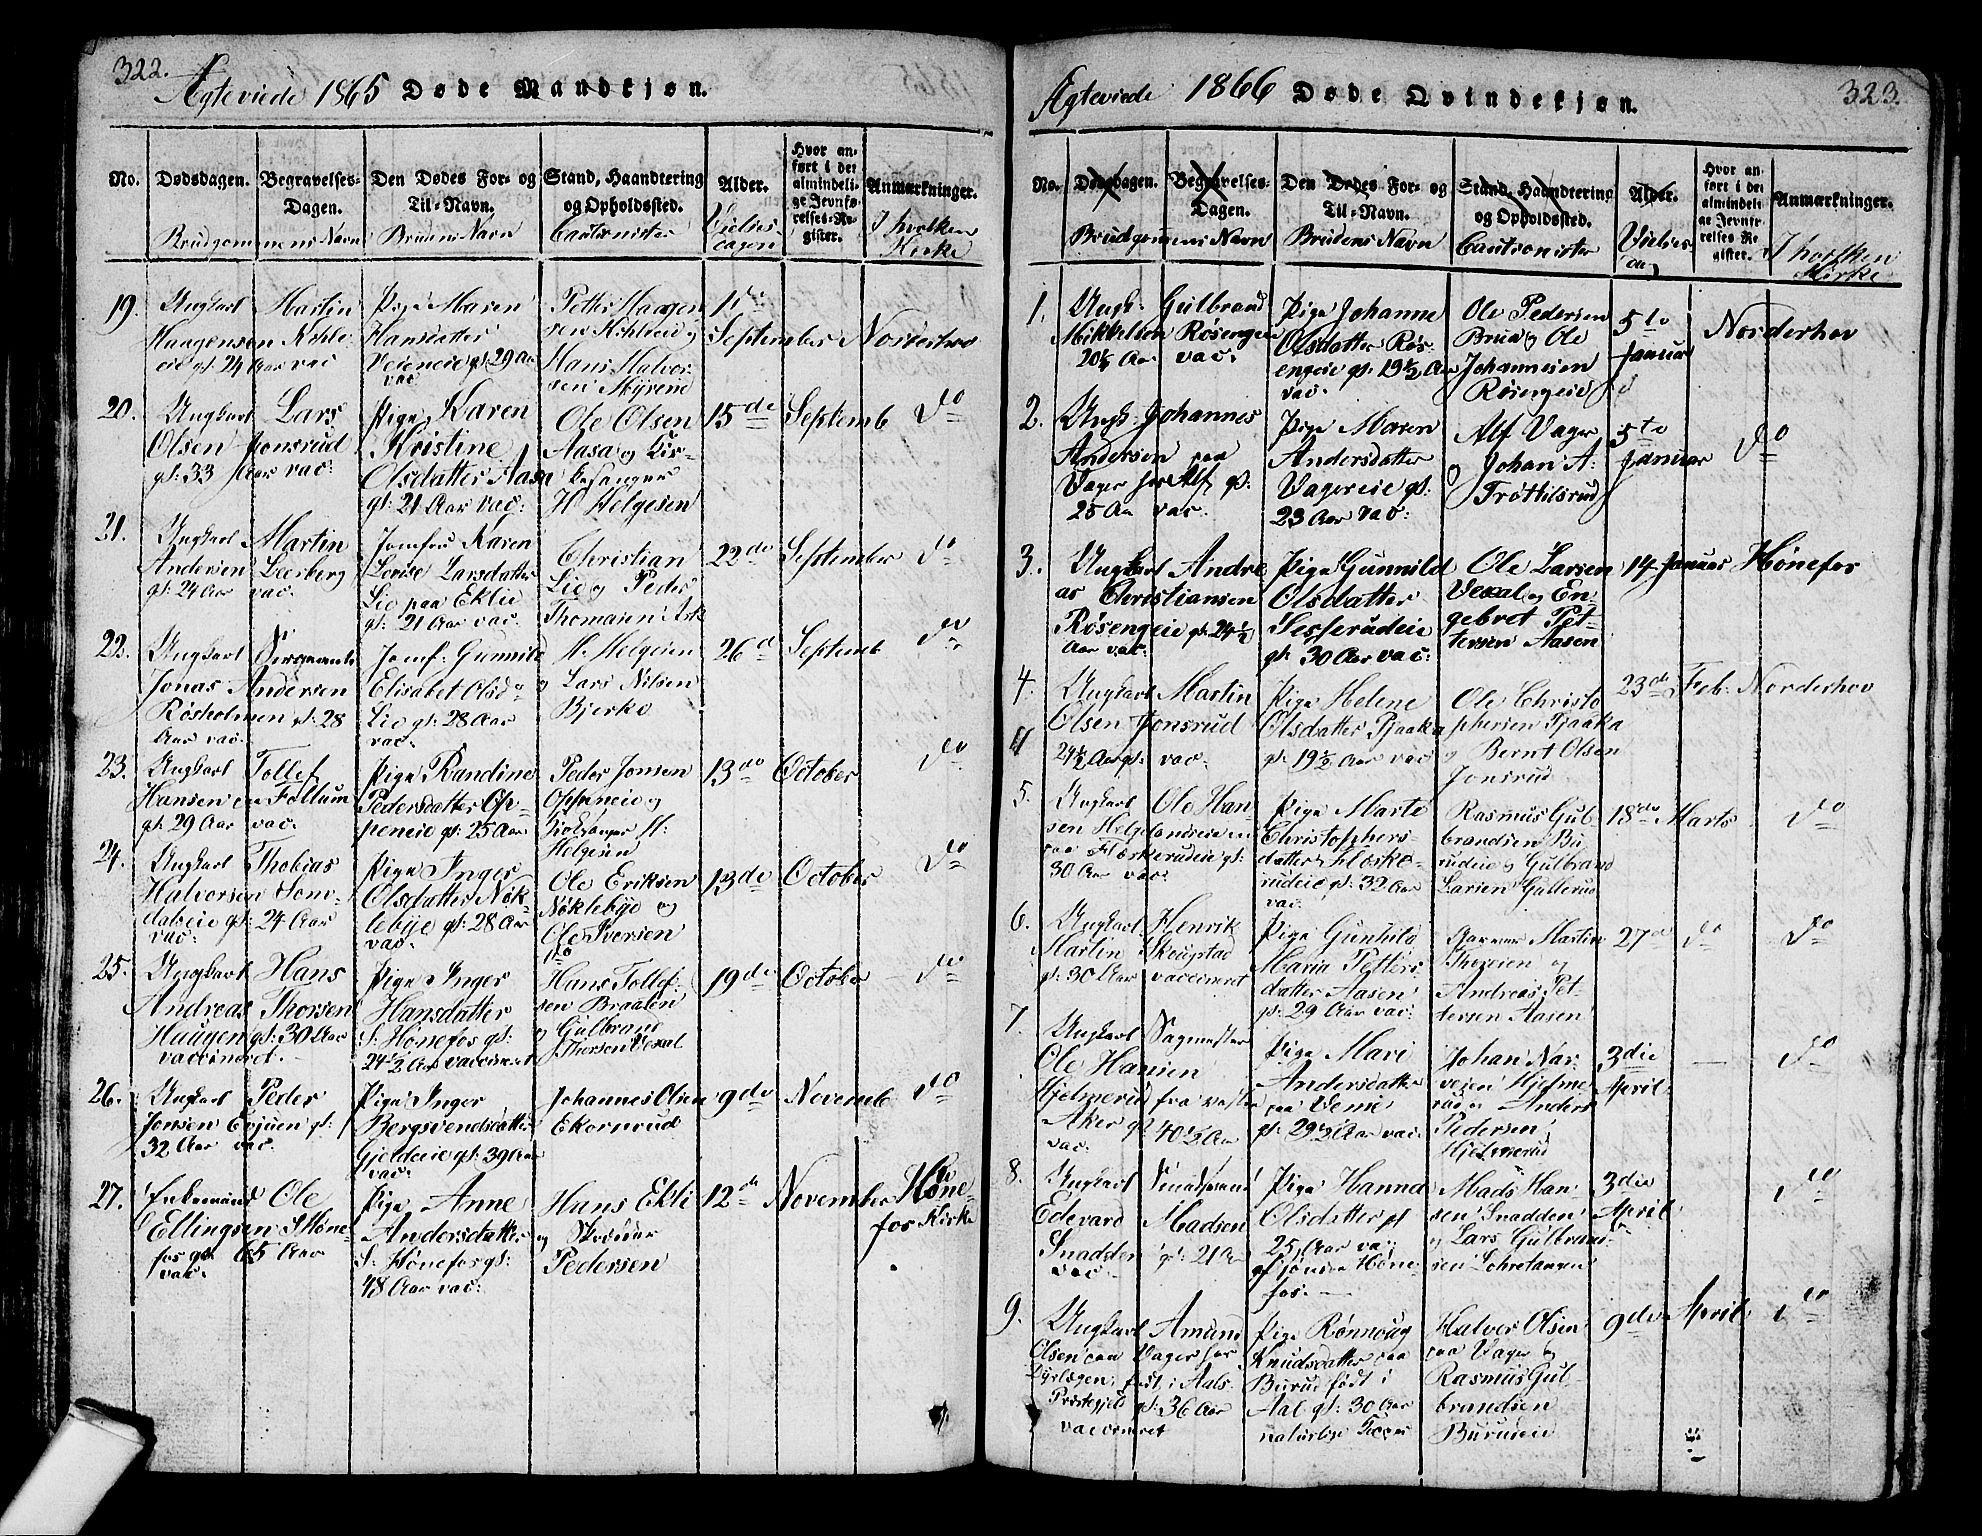 322.
Ægteviede 1865 Døde Mandkjøn.
No. Dødsdagen. Begravelses-Dagen. Den Dødes For- og Til-Navn. Stand, Haandtering og Opholdssted. Alder. Hvor anført i det almindelige Jevnførelses-Register. Anmærkninger.
Brudgommens Navn Brudens Navn Cautionister Vielsesdagen I hvilken Kirke
19. Ungkarl Martin Pige Maren Petter Haagen 1ste
Haagensen Kihle Hansdatter sen Kihleeie og September Norderhov
eie gl: 24 Aar vac Veieneie gl: 29 Aar Hans Halvor
vac sen Myreeie
20. Ungkarl Lars Pige Karen Ole Olsen 15de Septemb do
Olsen Jonsrud Kristine Aasa og Kir
gl: 33 Aar vac: Olsdatter Aasa kesanger
gl: 21 Aar vac: H Helgesen
21. Ungkarl Martin Jomfru Karen Christian 22de September do
Andersen Leerberg Lovise Larsdatter Lie og Peder
gl: 24 Aar vac: Lie paa Eklie Thomasen Ask
gl: 21 Aar vac:
22. Ungkarl Sergeant Jomf: Gunnild H. Helgesen 26d Septemb do
Jonas Andersen Elisabet Olsd og Lars Nilsen
Røsholmen gl: 28 Lie gl: 28 Aar Bjerke
Aar vac: vac:
23. Ungkarl Tollef Pige Randine Peder Jonsen 13de October do
Hansen Follum Pedersdatter Op- Oppeneie og
gl: 29 Aar vac: peneie gl: 25 Aar Kirkesanger H:
Helgesen
24. Ungkarl Thobias Pige Inger Ole Eriksen 13de October do
Halvorsen Sons Olsdatter Nøk Nøklebye og
daleie gl: 24 Aar lebye gl: 28 Aar Ole Iversen
vac: vac: do
25. Ungkarl Hans Pige Inger Hans Tollef 19de October do
Andreas Thorsen Hansdatter sen Braaten
Haugen gl: 30 Aar S: Hønefos gl: og Gulbrand
vaccineret. 24 1/2 Aar vaccineret Thorsen Vexal
26. Ungkarl Peder Pige Inger Johannes Olsen 9de Novemb do
Jonsen Evjuen gl: Bergsvendsdatter Ekornrud
32 Aar vac: Gjeldeie gl: 39 Aar
vac:
27. Enkemand Ole Pige Anne Hans Ekli 12de November Høne
Ellingsen S Høne Andersdatter og Skrædder fos Kirke
fos gl: 65 Aar S: Hønefos gl: Pedersen
vac. 48 Aar vac:
323.
Ægteviede 1866 Døde Qvindekjøn.
No. Dødsdagen. Begravelses-Dagen. Den Dødes For- og Til-Navn. Stand, Haandtering og Opholdssted. Alder. Hvor anført i det almindelige Jevnførelses-Register. Anmærkninger.
Brudgommens Navn Brudens Navn Cautionister Vielsesdag I hvilken Kirke
1. Ungk: Gulbrand Pige Johanne Ole Pedersen 5te Norderhov
Mikkelsen Røsengen Olsdatter Røs Brua og Ole Januar
20 1/2 Aar vac: engeie gl: 19 1/2 Aar Johannesen
vac: Røsengeie
2. Ungk: Johannes Pige Maren Alf Vager 5te do
Andersen paa Andersdatter og Johan A: Januar
Vager for Alf gl: Vagereie gl: Trøttilsrud
25 Aar vac: 23 Aar vac:
3. Ungkarl Andre Pige Gunnild Ole Larsen 14 Januar Hønefos
as Christiansen Olsdatter Vexal og En
Røsengeie gl: 24 1/2 Sesserudeie gebret Pet
Aar vac: gl: 30 Aar vac: tersen Aasen
4. Ungkarl Martin Pige Helene Ole Christo 23de Feb: Norderhov
Olsen Jonsrud Olsdatter Pjaaka phersen Pjaaka
24 1/2 Aar gl: vac: gl: 19 1/2 Aar vac og Bernt Olsen
Jonsrud
5. Ungkarl Ole Han Pige Marte Rasmus Gul 18de Marts do
sen Helgelandseie Christophers brandsen Bu
paa Flaskerudeie gl: datter Flaske rudeie og Gulbrand
30 Aar vac: rudeie gl: 32 Aar Larsen Gullerud
vac:
6. Ungkarl Henrik Pige Gunhild Garver Martin 27de do do
Martin Skougstad Maria Petters Thoresen og
gl: 30 Aar vaccineret datter Aasen Andreas Pet
gl: 29 Aar vac: tersen Aasen
7. Ungkarl Sagmester Pige Mari Johan Nar 3die — do
Ole Hansen Andersdatter vesen Hjelme April
Hjelmerud fra vestre paa Veme rud og Anders
Aker gl 40 1/2 Aar gl: 29 1/2 Aar vac: Pedersen
vac: Hjelmerud
8. Ungkarl Pige Hanna Mads Han 3die do
Edevard Madsen Olsdatter gl sen Snadden April
Snadden gl: 21 Aar 25 Aar vac: og Lars Gulbrand
vac: Hønefos. sen Lohretangen
9. Ungkarl Amund Pige Rønnoug Halvor Olsen 9de April do
Olsen paa Vager for Knudsdatter paa paa Vager og
Dyrlægen; født i Aals Burud født i Rasmus Gul
Præstegjeld gl: 36 Aar Aal gl: 30 Aar brandsen
vaccineret naturlige Burudeie